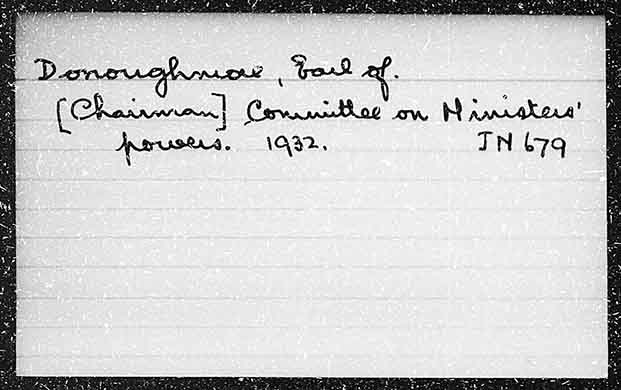 Donoughmore, Earl of.
[Chairman] Committee on Ministers'
powers. 1932. JN 679